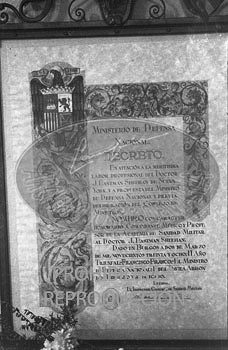 MINISTERIO DE DEFENSA
NACIONAL
DECRETO.
EN ATENCIÓN A LA MERITÍSIMA
LABOR PROFESIONAL DEL DOCTOR
J. EASTMAN SHEEHAN DE NUEVA
YORK, Y A PROPUESTA DEL MINISTRO
DE DEFENSA NACIONAL Y PREVIA
DELIBERACIÓN DEL CONSEJO DE
MINISTROS
NOMBRO CON CARACTER
HONORARIO COMANDANTE MÉDICO Y PROFE
SOR DE LA ACADEMIA DE SANIDAD MILITAR
AL DOCTOR J. EASTMAN SHEEHAN.
DADO EN BURGOS A DOS DE MARZO
DE MIL NOVECIENTOS TREINTA Y OCHO. II AÑO
TRIUNFAL FRANCISCO FRANCO EL MINISTRO
DE DEFENSA NACIONAL FIDEL DAVILA ARRONDO